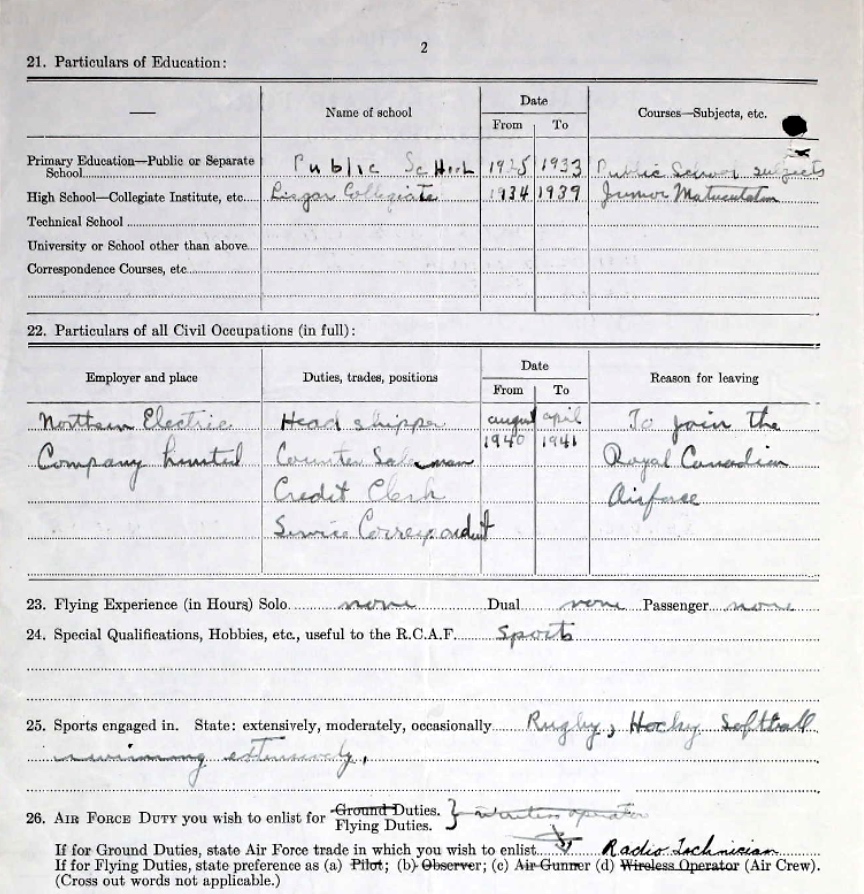 2
21. Particulars of Education:
— Name of school Date Courses—Subjects, etc.
From To
Primary Education—Public or Separate
School Public School 1925 1933 Public School subjects
High School—Collegiate Institute, etc. Lisgar Collegiate 1934 1939 Junior Matriculation
Technical School
University or School other than above
Correspondence Courses, etc
22. Particulars of all Civil Occupations (in full):
Employer and place Duties, trades, positions Date Reason for leaving
From To
Northern Electric Head shipper august april To join the
1940 1941
Company Limited Counter Salesman Royal Canadian
Credit Clerk Airforce
Service Correspondent
23. Flying Experience (in Hours) Solo none Dual none Passenger none
24. Special Qualifications, Hobbies, etc., useful to the R.C.A.F. Sports
25. Sports engaged in. State: extensively, moderately, occasionally Rugby, Hockey Softball
swimming extensively,
26. AIR FORCE DUTY you wish to enlist for Ground Duties. } wireless operator
Flying Duties.
If for Ground Duties, state Air Force trade in which you wish to enlist Radio Technician
If for Flying Duties, state preference as (a) Pilot; (b) Observer; (c) Air Gunner (d) Wireless Operator (Air Crew).
(Cross out words not applicable.)